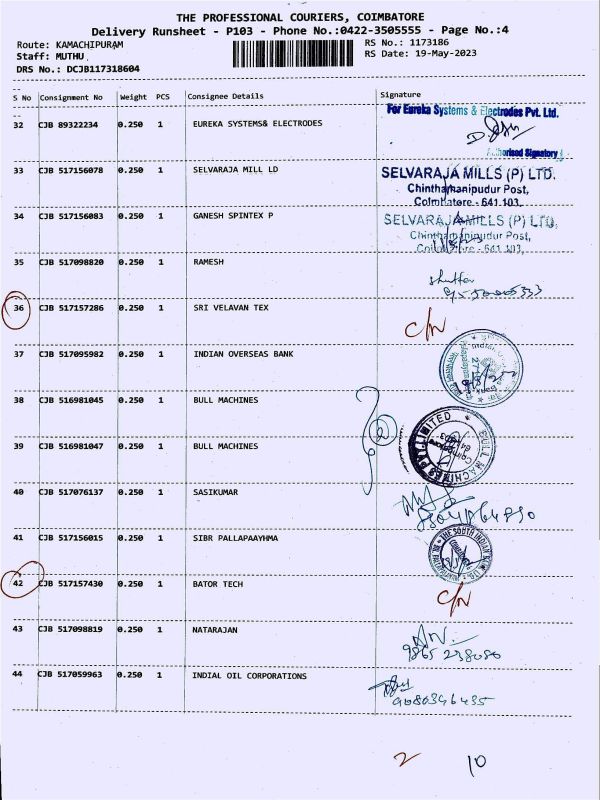 THE PROFESSIONAL COURIERS, COIMBATORE
Delivery Runsheet - P103 - Phone No.:0422-3505555 - Page No.:4
Route: KAMACHIPURAM
RS No.: 1173186
Staff: MUTHU
RS Date: 19-May-2023
DRS No.: DCJB117318604
S No Consignment No Weight PCS Consignee Details Signature
For Eureka Systems & Electrodes Pvt. Ltd.
32 CJB 89322234 0.250 1 EUREKA SYSTEMS& ELECTRODES
Authorised Signatory
33 CJB 517156078 0.250 1 SELVARAJA MILL LD
SELVARAJA MILLS (P) LTD.
Chinthamanipudur Post,
Coimbatore - 641 103.
34 CJB 517156083 0.250 1 GANESH SPINTEX P
SELVARAJA MILLS (P) LTD.
Chinthamanipudur Post,
Coimbatore - 641 103.
35 CJB 517098820 0.250 1 RAMESH
36 CJB 517157286 0.250 1 SRI VELAVAN TEX
C/N
37 CJB 517095982 0.250 1 INDIAN OVERSEAS BANK
38 CJB 516981045 0.250 1 BULL MACHINES
39 CJB 516981047 0.250 1 BULL MACHINES
BULL MACHINES PVT LIMITED
40 CJB 517076137 0.250 1 SASIKUMAR
41 CJB 517156015 0.250 1 SIBR PALLAPAAYHMA
THE SOUTH INDIAN BANK LTD.
42 CJB 517157430 0.250 1 BATOR TECH
C/N
43 CJB 517098819 0.250 1 NATARAJAN
9865 238080
44 CJB 517059963 0.250 1 INDIAL OIL CORPORATIONS
9080346435
2 10